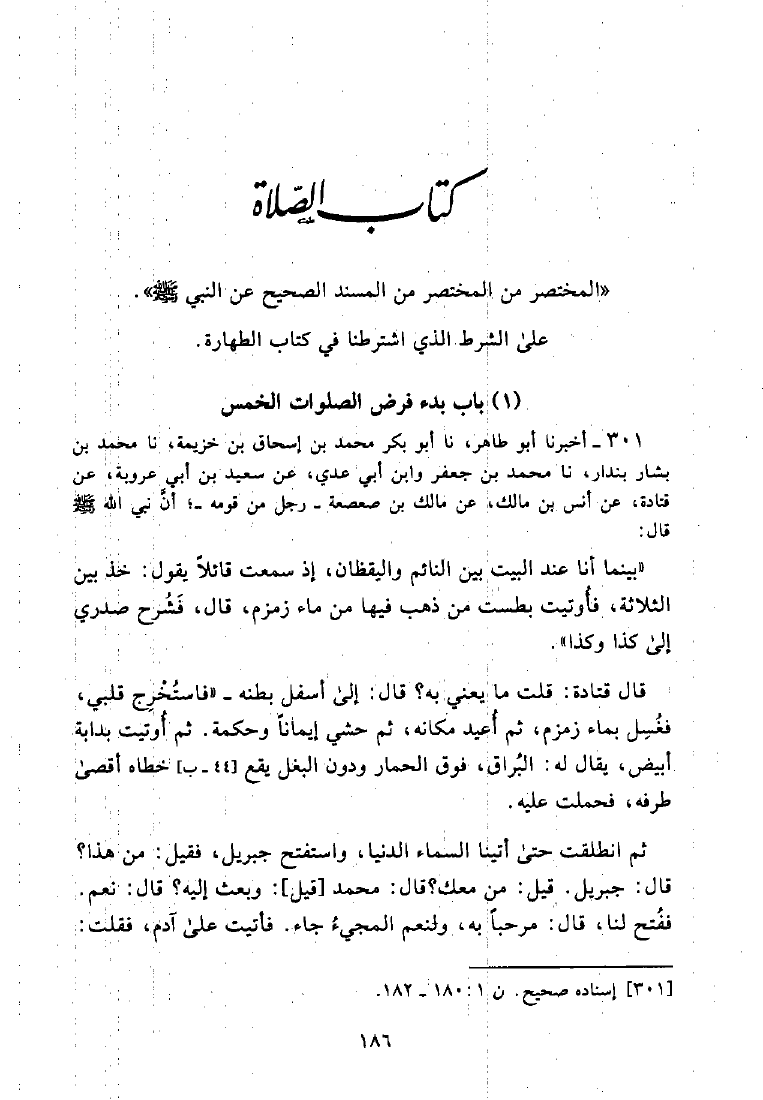 كتاب الصّلاة
«المختصر من المختصر من المسند الصحيح عن النبي ﷺ».
علىٰ الشرط الذي اشترطنا في كتاب الطهارة.
(١) باب بدء فرض الصلوات الخمس
٣٠١ ـ أخبرنا أبو طاهر، نا أبو بكر محمد بن إسحاق بن خزيمة، نا محمد بن
بشار بندار، نا محمد بن جعفر وابن أبي عدي، عن سعيد بن أبي عروبة، عن
قتادة، عن أنس بن مالك، عن مالك بن صعصعة ـ رجل من قومه ـ؛ أنَّ نبي الله ﷺ
قال:
«بينما أنا عند البيت بين النائم واليقظان، إذ سمعت قائلاً يقول: خذ بين
الثلاثة، فأُوتيت بطست من ذهب فيها من ماء زمزم، قال، فَشُرح صدري
إلىٰ كذا وكذا».
قال قتادة: قلت ما يعني به؟ قال: إلىٰ أسفل بطنه ـ «فاستُخْرِج قلبي،
فغُسِل بماء زمزم، ثم أُعيد مكانه، ثم حشي إيماناً وحكمة. ثم أُوتيت بدابة
أبيض، يقال له: البُراق، فوق الحمار ودون البغل يقع [٤٤ ـ ب] خطاه أقصىٰ
طرفه، فحملت عليه.
ثم انطلقت حتىٰ أتينا السماء الدنيا، واستفتح جبريل، فقيل: من هذا؟
قال: جبريل. قيل: من معك؟ قال: محمد [قيل]: وبعث إليه؟ قال: نعم.
ففُتح لنا، قال: مرحباً به، ولنعم المجيءُ جاء. فأتيت علىٰ آدم، فقلت:
[٣٠١] إسناده صحيح. ن ١: ١٨٠ ـ ١٨٢.
١٨٦